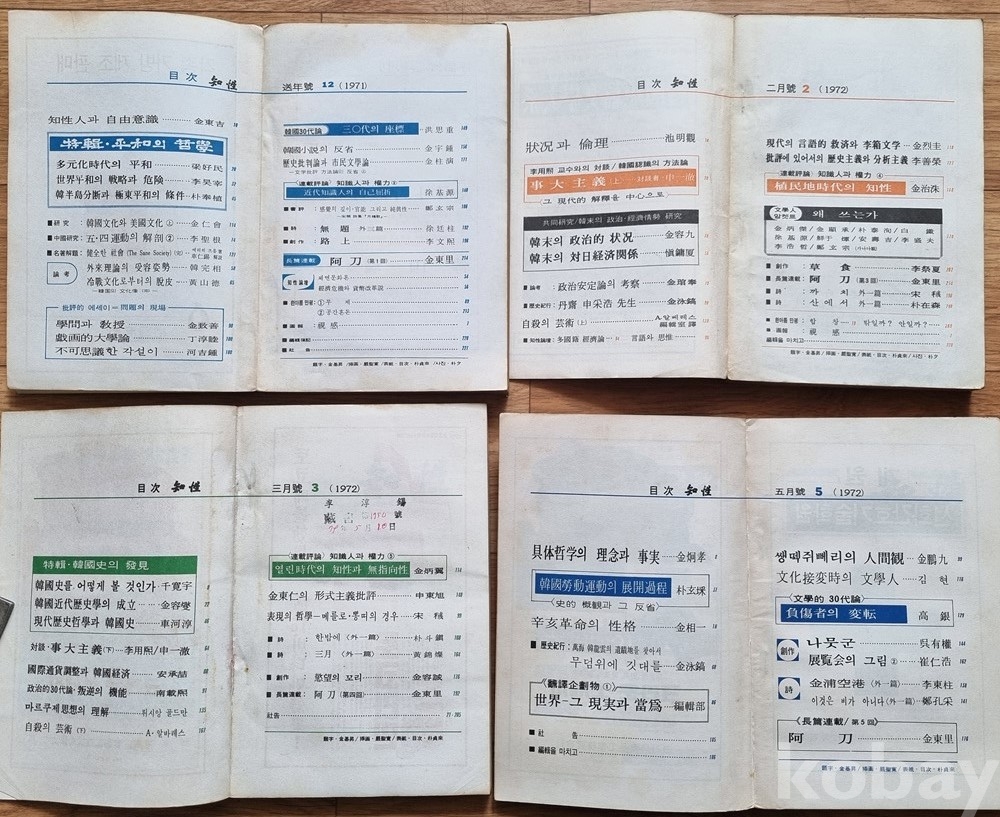 目次 知性
送年號 12 (1971)
知性人과 自由意識 金東吉
特輯·平和의 哲學
多元化時代의 平和 梁好民
世界平和의 戰略과 危險 李昊宰
韓半島分断과 極東平和의 條件 朴奉植
■研究: 韓國文化와 美國文化 ① 金仁會
■中國研究: 五·四運動의 解剖 ② 李聖根
■名著解題: 健全한 社會 (The Sane Society)
論考
外來理論의 受容姿勢 韓完相
冷戰文化로부터의 脫皮 黃山德
批評的 에세이—問題의 現場
學問과 敎授 金敦善
戱画的 大學論 丁淳睦
不可思議한 각설이 河吉鍾
韓國30代論 三〇代의 座標 洪思重
韓國小說의 反省 金宇鍾
歷史批判論과 市民文學論 金柱演
〈連載評論〉知識人과 權力 ①
近代知識人의 自己屈折 徐基源
鄭玄宗
■詩: 無題 外三篇 徐廷柱
■創作: 路上 李文熙
長篇連載 阿刀 (第1回) 金東里
經濟危機와 貨幣改革説
■画報: 視感
■編輯後記
■社告
目次 知性
二月號 2 (1972)
狀況과 倫理 池明觀
李用熙 교수와의 対談/韓國認識의 方法論
事大主義(上) 対談者 申一澈
그 現代的 解釋을 中心으로
共同研究/韓末의 政治·經濟情勢 研究
韓末의 政治的 状况 金容九
韓末의 対日経済関係 愼鏞廈
■論考: 政治安定論의 考察 金瑄奉
■歷史紀行: 丹齋 申采浩 先生 金泳鎬
自殺의 芸術(上) A.알바레스 編輯室譯
■知性論壇: 多國籍 經濟論 言語와 思惟
現代의 言語的 救済와 李箱文学 金烈圭
批評에 있어서의 歷史主義와 分析主義 李善榮
〈連載評論〉知識人과 權力 ②
植民地時代의 知性 金治洙
文學人 앙켓트
왜 쓰는가
■創作: 草食 李祭夏
■長篇連載: 阿刀 (第3回) 金東里
■詩: 까치 外一篇 宋稶
■詩: 산에서 外一篇 朴在森
■画報: 視感
編輯을 마치고
目次 知性
三月號 3 (1972)
特輯·韓國史의 發見
韓國史를 어떻게 볼 것인가 千寬宇
韓國近代歷史學의 成立 金容燮
現代歷史哲學과 韓國史 車河淳
対談·事大主義(下) 李用熙/申一澈
國際通貨調整과 韓國経済 安承喆
政治的 30代論·叛逆의 機能 南載熙
마르쿠제思想의 理解 뤼시앙 골드만
自殺의 芸術 (下) A·알바레스
〈連載評論〉知識人과 權力 ③
열린時代의 知性과 無指向性 金炳翼
金東仁의 形式主義批評 申東旭
表現의 哲學—메를로·퐁띠의 경우 宋稶
■詩: 한밤에 (外一篇) 朴斗鎭
■詩: 三月 (外一篇) 黃錦燦
■創作: 慾望의 꼬리 金容誠
■長篇連載: 阿刀 (第四回) 金東里
社告
目次 知性
五月號 5 (1972)
具体哲学의 理念과 事実 金炯孝
韓國勞動運動의 展開過程 朴玄埰
〈史的 概観과 그 反省〉
辛亥革命의 性格 金相一
■歷史紀行: 萬海 韓龍雲의 遺蹟地를 찾아서
무덤위에 깃대를 金泳鎬
《飜譯企劃物 ①》
世界—그 現実과 當爲 編輯部
■社告
■編輯을 마치고
쌩떽쥐뻬리의 人間観 金鵬九
文化接変時의 文學人 김현
〈文學的 30代論〉
負傷者의 変転 高銀
創作
나뭇군 吳有權
展覧会의 그림② 崔仁浩
詩
金浦空港 (外一篇) 李東柱
이것은 비가 아니다 (外一篇) 鄭孔采
《長篇連載/第5回》
阿刀 金東里
kobay